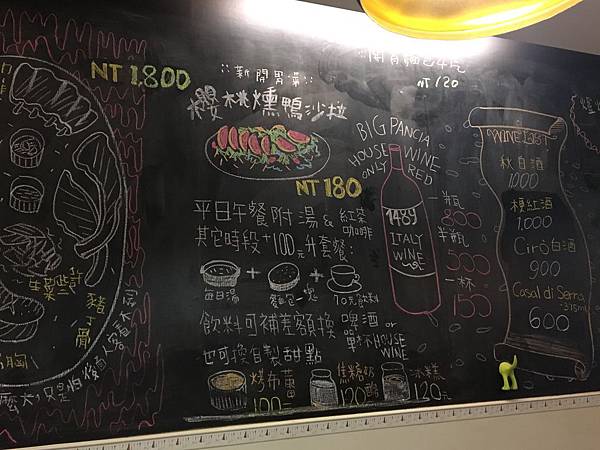 NT 1,800
生菜些許
豬
骨
後面人客看不到
新開胃菜
櫻桃燻鴨沙拉
NT 180
平日午餐附湯 & 紅茶 咖啡
其它時段+100元升套餐:
今日湯 + 麵包一塊 + 70元飲料
飲料可補差額換 啤酒 or
單杯HOUSE WINE
也可換自製甜點
烤布蕾
100-
焦糖奶酪
120
冰糕
120元
NT 120
BIG PANCIA
HOUSE WINE
ONLY RED
1489
ITALY
WINE
一瓶
800
半瓶
500
一杯
150
WINE LIST
秋白酒
1000
梗紅酒
1,000
Cirò白酒
900
Casal di Serra
375ml
600